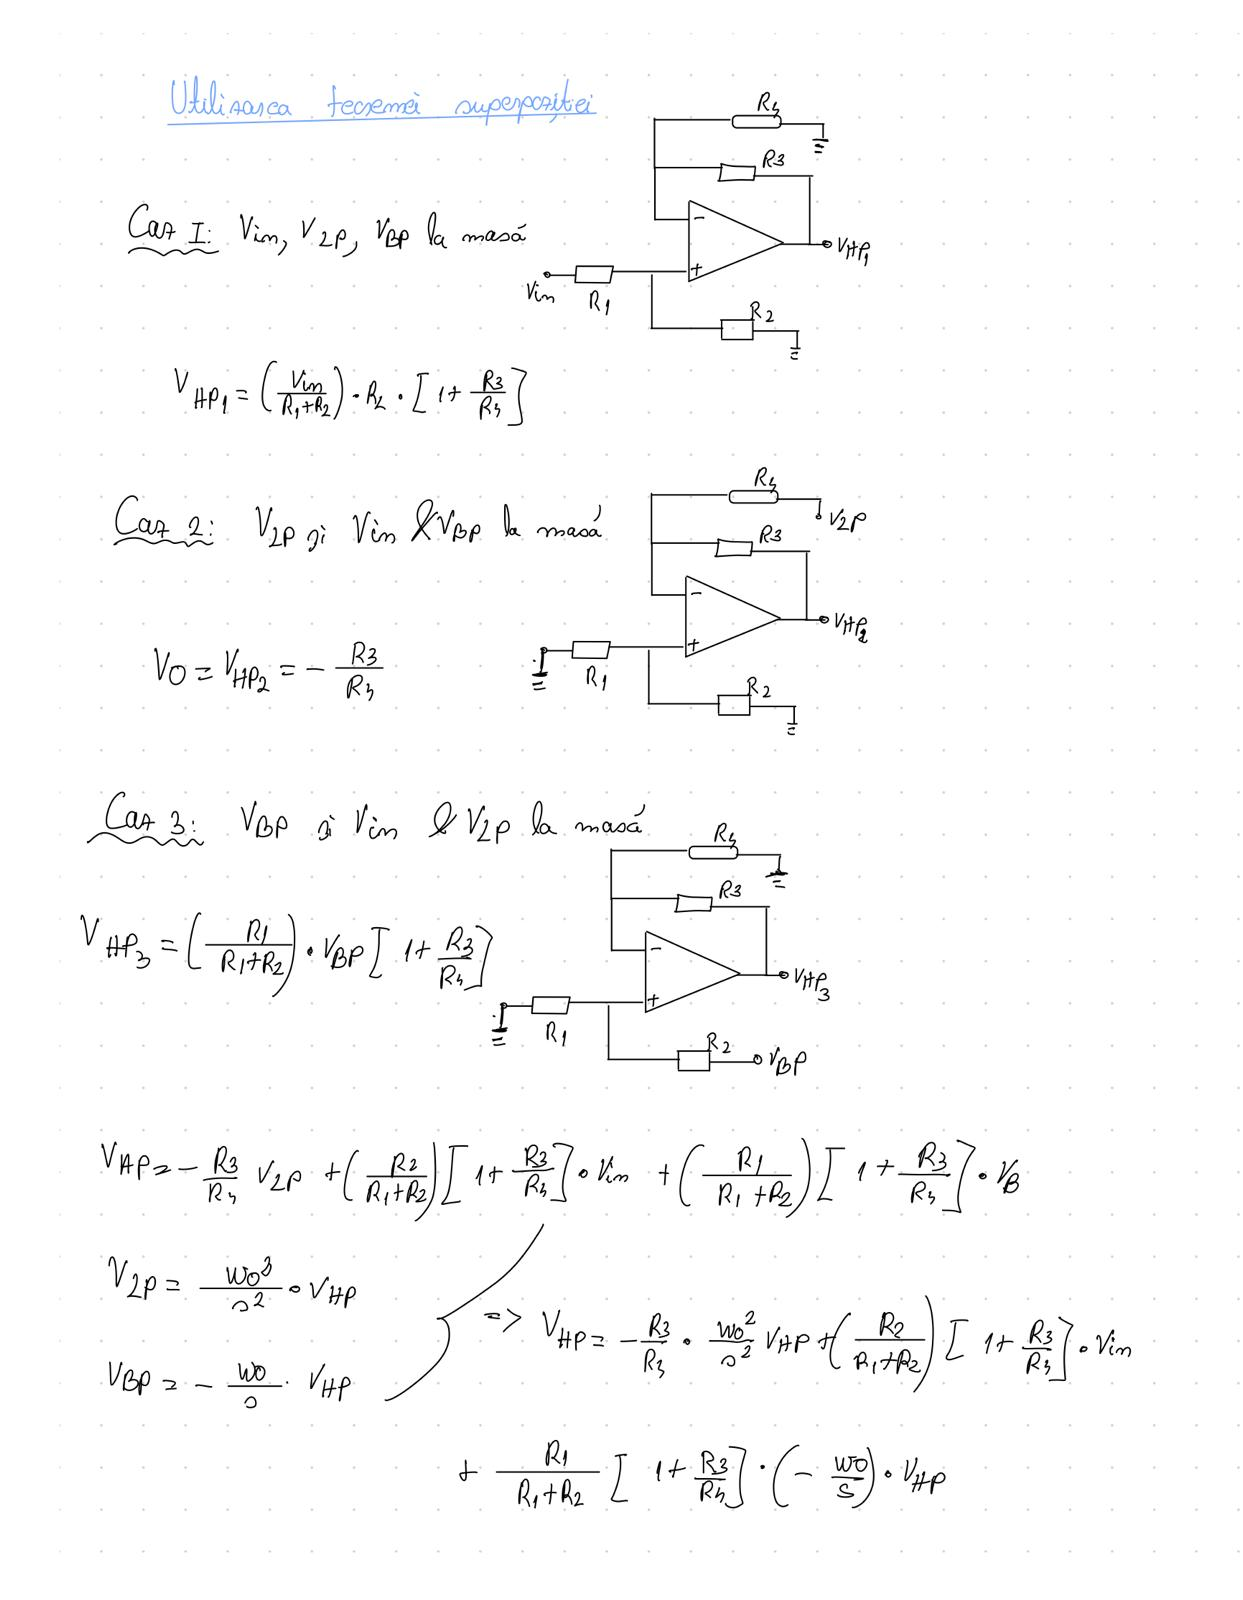 Utilizarea teoremei superpoziției
R4
R3
Caz I: Vin, V2P, VBP la masă
-
+
VHP1
Vin
R1
R2
VHP1 = (Vin/(R1+R2)) · R2 · [1 + R3/R4]
R4
V2P
R3
Caz 2: V2P și Vin & VBP la masă
-
+
VHP2
R1
R2
VO = VHP2 = - R3/R4
Caz 3: VBP și Vin & V2P la masă
R4
R3
VHP3 = (R1/(R1+R2)) · VBP [1 + R3/R4]
-
+
VHP3
R1
R2
VBP
VHP = - R3/R4 V2P + (R2/(R1+R2)) [1 + R3/R4] · Vin + (R1/(R1+R2)) [1 + R3/R4] · VB
V2P = ω0³/s² · VHP
=> VHP = - R3/R4 · ω0²/s² VHP + (R2/(R1+R2)) [1 + R3/R4] · Vin
VBP = - ω0/s · VHP
+ R1/(R1+R2) [1 + R3/R4] · (- ω0/s) · VHP